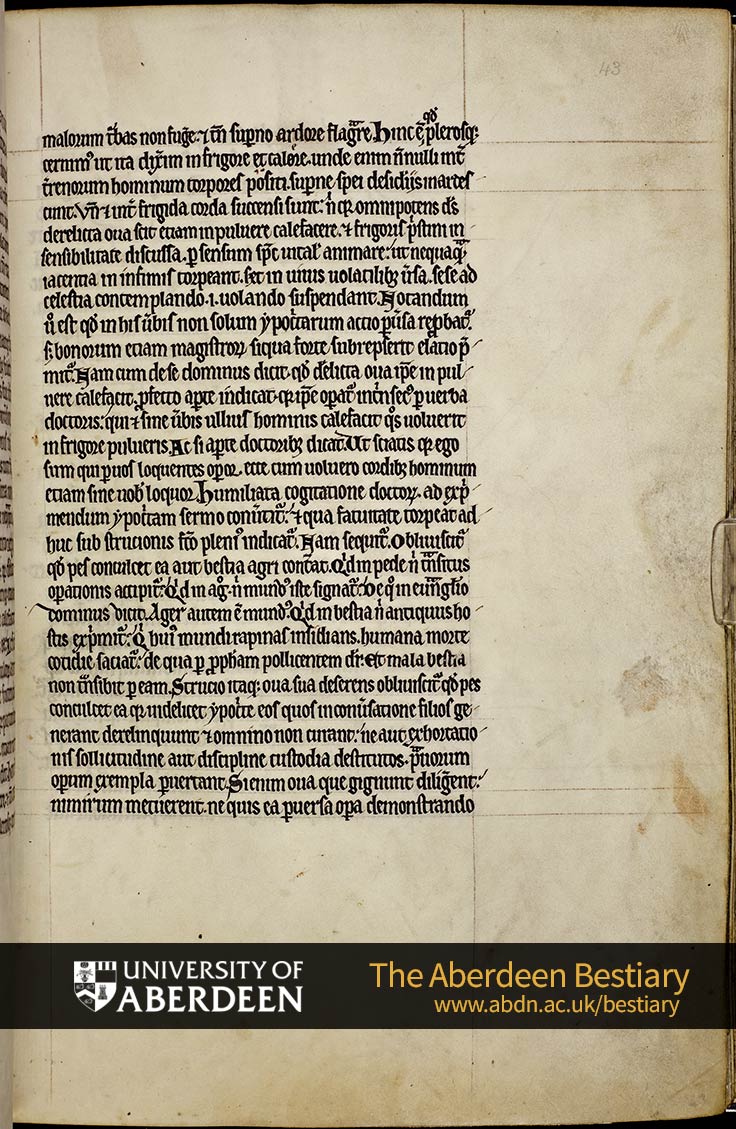 43
qd̄
malorum t̄bas non fuḡe: ⁊ tn̄ sup̄no ardore flagᵃre. Hinc ē plerosq;
cernimꝰ ut ita dix̄im in frigore et calore. unde enim n̄nulli int̄
t̄renorum hominum torpores positi. sup̄ne spei desid'iis inardes
cunt. Vn̄ ⁊ int̄ frigida corda succensi sunt: n̄ qꝛ omnipotens ds̄
derelicta oua scit etiam in puluere calefacere. ⁊ frigoris p̄stini in
sensibilitate discussa. ꝑ sensum sp̄c uital' animare: ut nequaqᵃ
iacentia in infimis torpeant. set in uiuis uolatilibꝫ ūsa. sese ad
celestia contemplando .i. uolando suspendant. Notandum
ū est qd̄ in his ūbis non solum ypoc̄tarum actio ꝑūsa rep̄batᷣ.
s; bonorum etiam magistroꝝ siqua forte subrepserit elatio p̄
mitᷣ. Nam cum de se dominus dicit. qd̄ delicta oua ip̄e in pul
uere calefacit. p̄fecto aꝑte indicat. qꝛ ip̄e oꝑatᷣ int̄nsec̄ ꝑ uerba
doctoris: qui ⁊ sine ūbis ullius hominis calefacit qͦs uoluerit
in frigore pulueris. Ac si aꝑte doctoribꝫ dicat. Ut sciatis qꝛ ego
sum qui ꝑ uos loquentes oꝑor. ecce cum uoluero cordibꝫ hominum
etiam sine uob' loquor. Humiliata cogitatione doctoꝝ. ad exp̄
mendum ypoc̄tam sermo conūtitᷣ. ⁊ qua fatuitate torpeat ad
huc sub strucionis fc̄o pleniꝰ indicatᷣ. Nam sequitᷣ. Obliuiscitᷣ
qd̄ pes conculcet ea aut bestia agri cont̄at. Qͥd in pede n̄ tᵃnsitus
oꝑationis accipitᷣ: Qͥd in agͦ. n̄ mundꝰ iste signatᷣ: De qͦ in euᵃnglio
dominus dicit. Ager autem ē mundꝰ. Qͥd in bestia n̄ antiquus ho
stis exp̄mitᷣ. Qͥ huiꝰ mundi rapinas insidians. humana morte
cotidie saciatᷣ: de qua ꝑ ꝓph̄am pollicentem dr̄. Et mala bestia
non tᵃnsibit ꝑ eam. Strucio itaq; oua sua deserens obliuiscitᷣ qd̄ pes
conculcet ea qꝛ uidelicet ypoc̄te eos quos in conūsatione filios ge
nerant derelinquunt ⁊ omnino non curant: ne aut exhortatio
nis sollicitudine aut discipline custodia destitutos. pᵃuorum
oꝑum exempla ꝑuertant. Si enim oua que gignunt diliḡent:
nimirum metuerent. ne quis ea ꝑuersa oꝑa demonstrando
UNIVERSITY OF
ABERDEEN
The Aberdeen Bestiary
www.abdn.ac.uk/bestiary